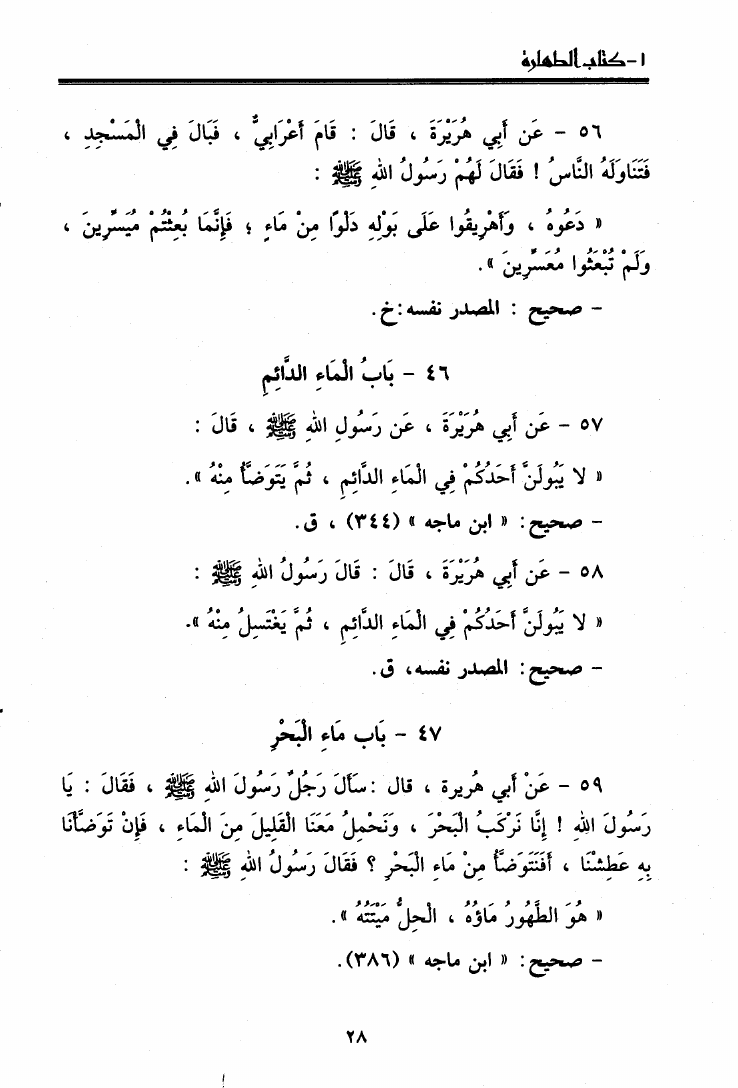 ١- كتاب الطهارة
٥٦ - عَن أَبِي هُرَيْرَةَ ، قَالَ : قَامَ أَعْرَابِيٌّ ، فَبَالَ فِي الْمَسْجِدِ ،
فَتَنَاوَلَهُ النَّاسُ ! فَقَالَ لَهُمْ رَسُولُ اللهِ ﷺ :
« دَعُوهُ ، وَأَهْرِيقُوا عَلَى بَوْلِهِ دَلْوًا مِنْ مَاءٍ ؛ فَإِنَّمَا بُعِثْتُمْ مُيَسِّرِينَ ،
وَلَمْ تُبْعَثُوا مُعَسِّرِينَ ».
- صحيح : المصدر نفسه:خ.
٤٦ - بَابُ الْمَاءِ الدَّائِمِ
٥٧ - عَن أَبِي هُرَيْرَةَ ، عَن رَسُولِ اللهِ ﷺ ، قَالَ :
« لا يَبُولَنَّ أَحَدُكُمْ فِي الْمَاءِ الدَّائِمِ ، ثُمَّ يَتَوَضَّأُ مِنْهُ ».
- صحيح: « ابن ماجه » (٣٤٤) ، ق.
٥٨ - عَن أَبِي هُرَيْرَةَ ، قَالَ : قَالَ رَسُولُ اللهِ ﷺ :
« لا يَبُولَنَّ أَحَدُكُمْ فِي الْمَاءِ الدَّائِمِ ، ثُمَّ يَغْتَسِلُ مِنْهُ ».
- صحيح: المصدر نفسه، ق.
٤٧ - بَاب مَاءِ الْبَحْرِ
٥٩ - عَنْ أَبِي هُريرة ، قال :سَأَلَ رَجُلٌ رَسُولَ اللهِ ﷺ ، فَقَالَ : يَا
رَسُولَ اللهِ ! إِنَّا نَرْكَبُ الْبَحْرَ ، وَنَحْمِلُ مَعَنَا الْقَلِيلَ مِنَ الْمَاءِ ، فَإِنْ تَوَضَّأْنَا
بِهِ عَطِشْنَا ، أَفَنَتَوَضَّأُ مِنْ مَاءِ الْبَحْرِ ؟ فَقَالَ رَسُولُ اللهِ ﷺ :
« هُوَ الطَّهُورُ مَاؤُهُ ، الْحِلُّ مَيْتَتُهُ ».
- صحيح: « ابن ماجه » (٣٨٦).
٢٨